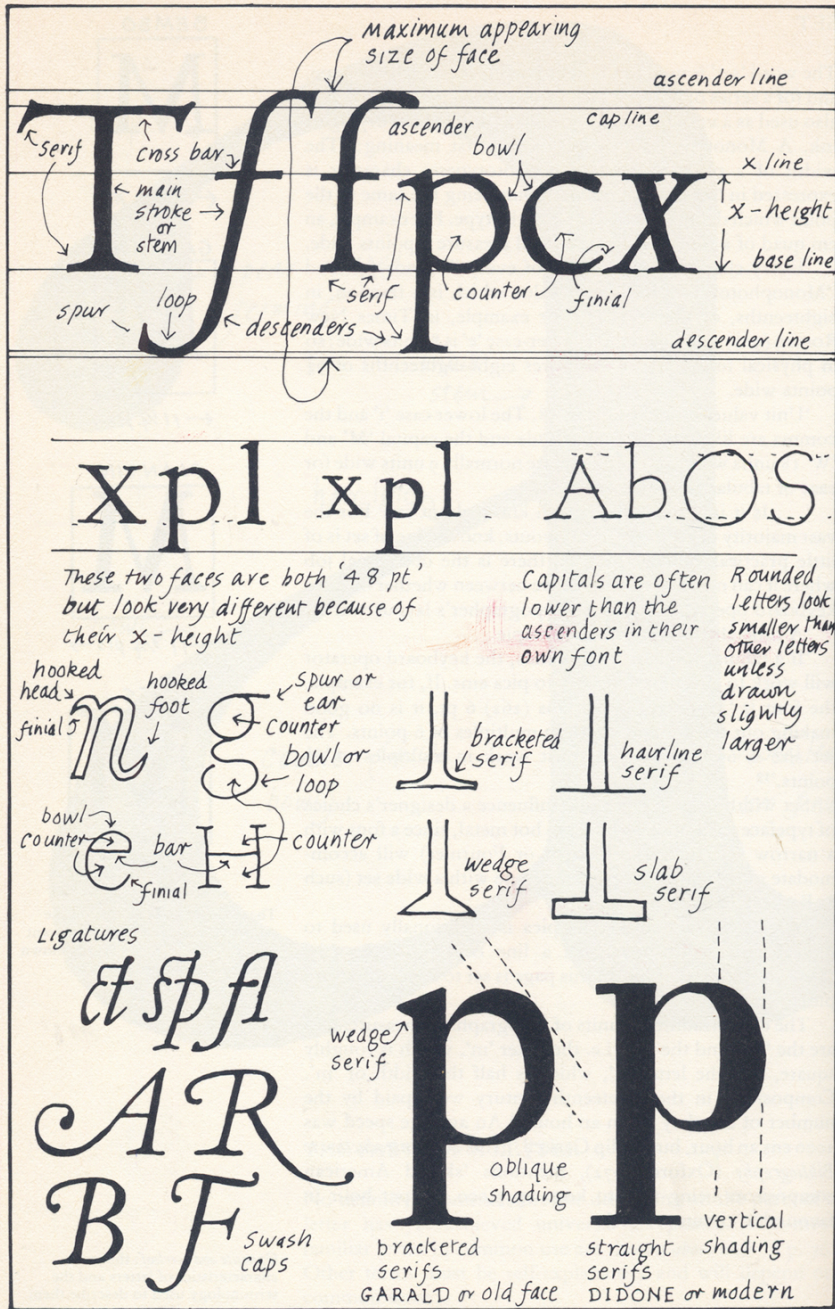 Maximum appearing
size of face
ascender line
cap line
x line
x-height
base line
descender line
Tffpcx
serif
cross bar
main
stroke
or
stem
ascender
bowl
spur
loop
descenders
serif
counter
finial
xpl xpl AbOS
These two faces are both '48 pt'
but look very different because of
their x-height
Capitals are often
lower than the
ascenders in their
own font
Rounded
letters look
smaller than
other letters
unless
drawn
slightly
larger
hooked
head
finial
n
hooked
foot
g
spur or
ear
counter
bowl or
loop
bowl
counter
e
finial
bar
H
counter
bracketed
serif
hairline
serif
wedge
serif
slab
serif
Ligatures
ct sp fl
A R
B F
Swash
caps
wedge
serif
p p
oblique
shading
vertical
shading
bracketed
serifs
GARALD or old face
straight
serifs
DIDONE or modern